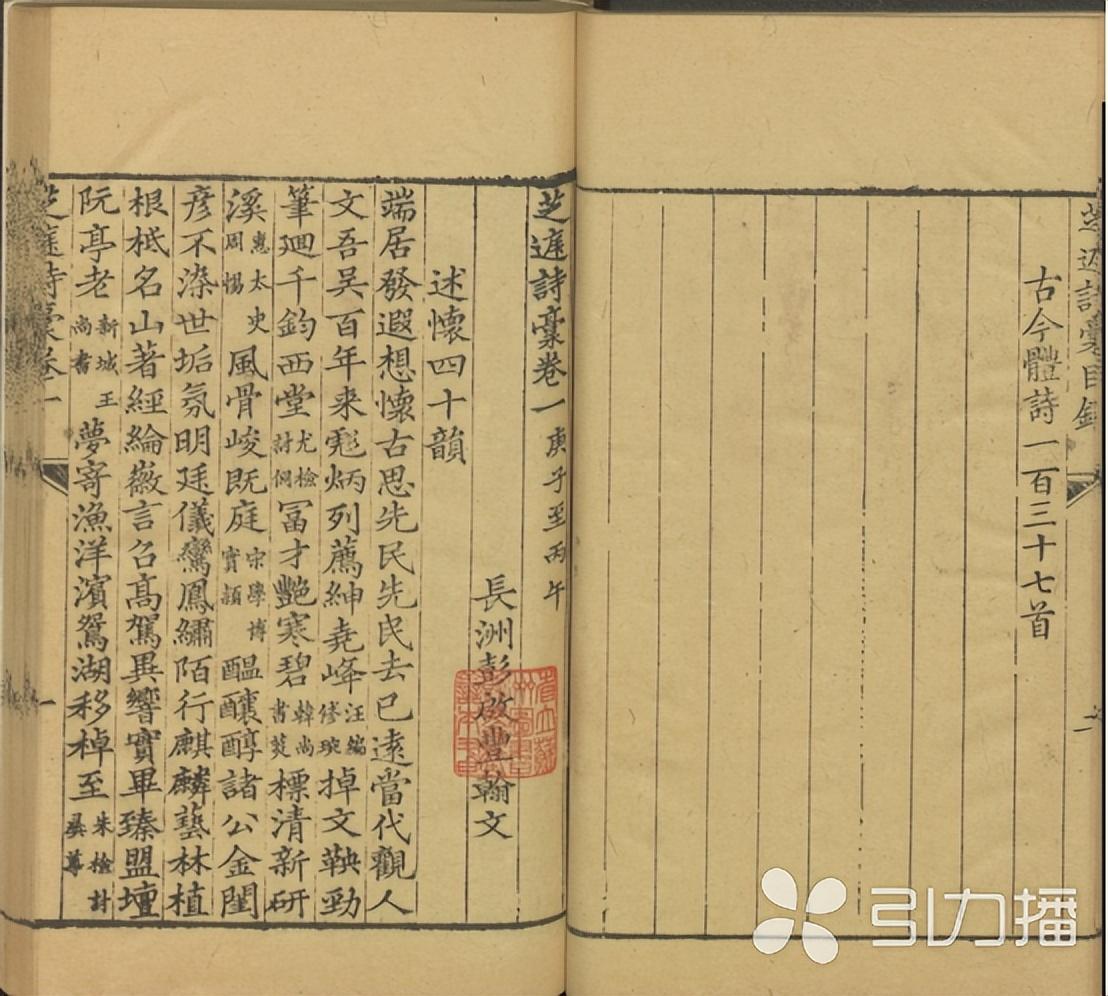 芝庭詩稾目錄
古今體詩一百三十七首
芝庭詩稾卷一 庚子至丙午
長洲彭啟豐翰文
述懷四十韻
端居發遐想懷古思先民先民去已遠當代觀人
文吾吳百年来彪炳列薦紳堯峰汪編修琬掉文鞅勁
筆迴千鈞西堂尤檢討侗冨才艷寒碧韓尚書菼標清新研
溪惠太史周惕風骨峻既庭宋學博實穎醞釀醇諸公金閨
彦不染世垢氛明廷儀鸞鳳繡陌行麒麟藝林植
根柢名山著經綸薇言召高駕異響實畢臻盟壇
阮亭老新城王尚書夢寄漁洋濱鴛湖移棹至朱檢討彝尊
芝庭詩稾卷一
一
引力播